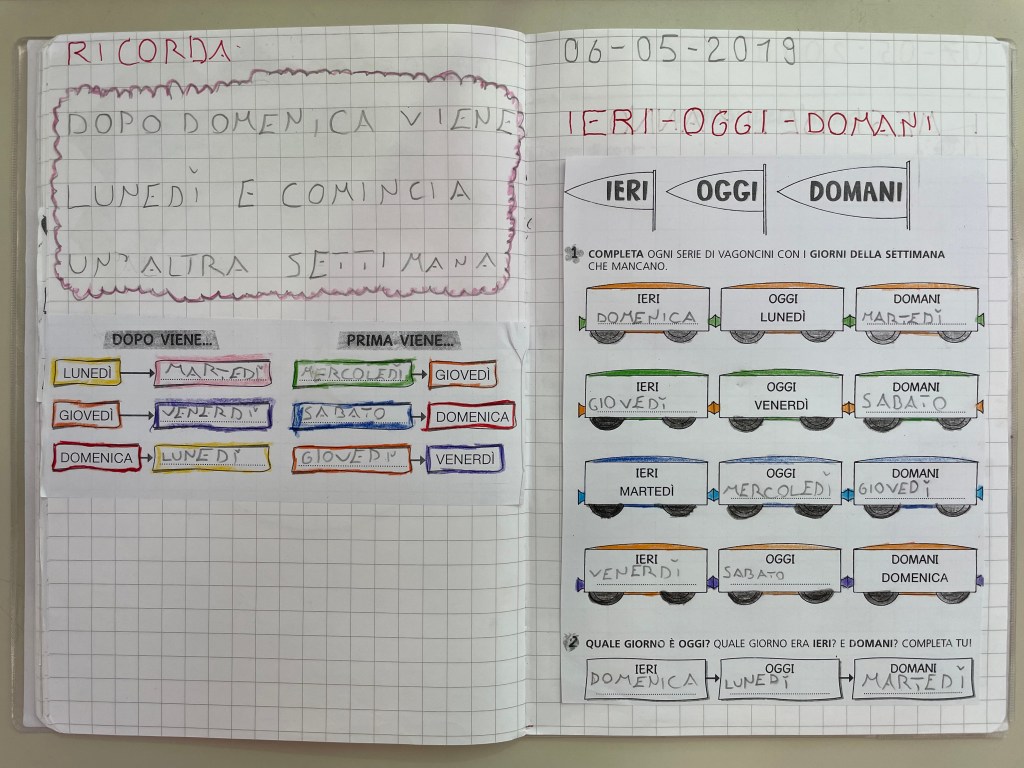 RICORDA
DOPO DOMENICA VIENE
LUNEDÌ E COMINCIA
UN'ALTRA SETTIMANA
DOPO VIENE... PRIMA VIENE...
LUNEDÌ MARTEDÌ MERCOLEDÌ GIOVEDÌ
GIOVEDÌ VENERDÌ SABATO DOMENICA
DOMENICA LUNEDÌ GIOVEDÌ VENERDÌ
06-05-2019
IERI-OGGI-DOMANI
IERI OGGI DOMANI
1 COMPLETA OGNI SERIE DI VAGONCINI CON I GIORNI DELLA SETTIMANA
CHE MANCANO.
IERI OGGI DOMANI
DOMENICA LUNEDÌ MARTEDÌ
IERI OGGI DOMANI
GIOVEDÌ VENERDÌ SABATO
IERI OGGI DOMANI
MARTEDÌ MERCOLEDÌ GIOVEDÌ
IERI OGGI DOMANI
VENERDÌ SABATO DOMENICA
2 QUALE GIORNO È OGGI? QUALE GIORNO ERA IERI? E DOMANI? COMPLETA TU!
IERI OGGI DOMANI
DOMENICA LUNEDÌ MARTEDÌ